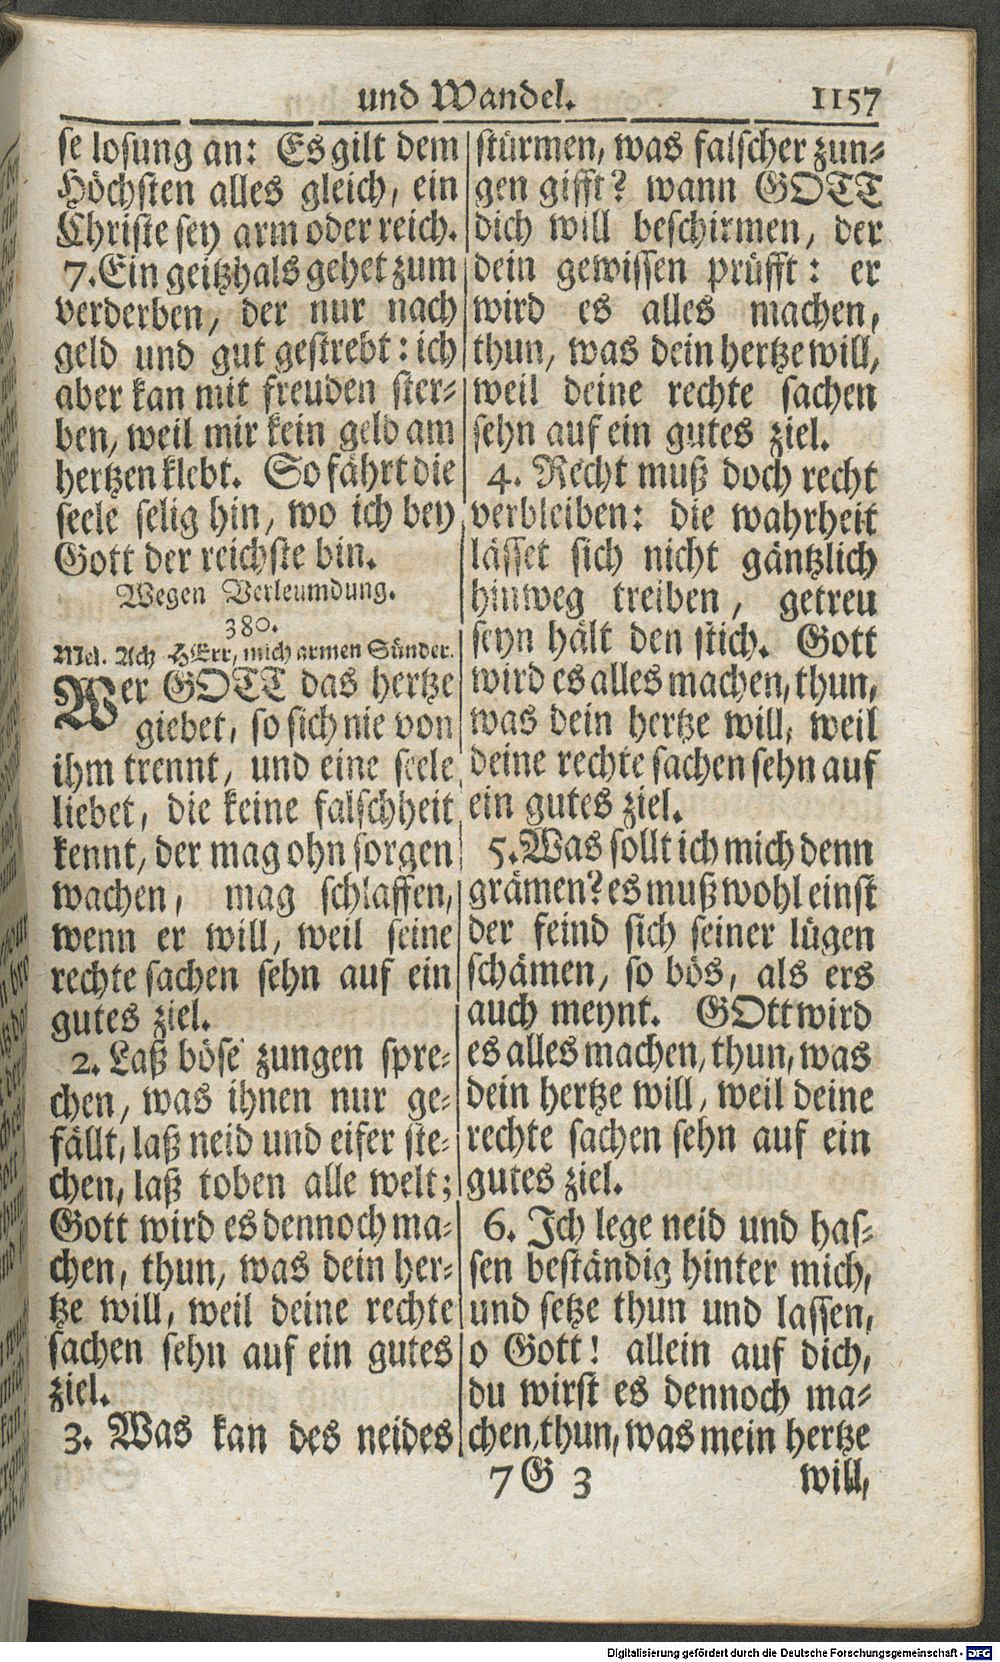 und Wandel. 1157
se losung an: Es gilt dem
Höchsten alles gleich, ein
Christe sey arm oder reich.
7. Ein geitzhals gehet zum
verderben, der nur nach
geld und gut gestrebt: ich
aber kan mit freuden ster-
ben, weil mir kein geld am
hertzen klebt. So fährt die
seele selig hin, wo ich bey
Gott der reichste bin.
Wegen Verleumdung.
380.
Mel. Ach HErr, mich armen Sünder.
Wer GOTT das hertze
giebet, so sich nie von
ihm trennt, und eine seele
liebet, die keine falschheit
kennt, der mag ohn sorgen
wachen, mag schlaffen,
wenn er will, weil seine
rechte sachen sehn auf ein
gutes ziel.
2. Laß böse zungen spre-
chen, was ihnen nur ge-
fällt, laß neid und eifer ste-
chen, laß toben alle welt;
Gott wird es dennoch ma-
chen, thun, was dein her-
tze will, weil deine rechte
sachen sehn auf ein gutes
ziel.
3. Was kan des neides
stürmen, was falscher zun-
gen gifft? wann GOTT
dich will beschirmen, der
dein gewissen prüfft: er
wird es alles machen,
thun, was dein hertze will,
weil deine rechte sachen
sehn auf ein gutes ziel.
4. Recht muß doch recht
verbleiben: die wahrheit
lässet sich nicht gäntzlich
hinweg treiben, getreu
seyn hält den stich. Gott
wird es alles machen, thun,
was dein hertze will, weil
deine rechte sachen sehn auf
ein gutes ziel.
5. Was sollt ich mich denn
grämen? es muß wohl einst
der feind sich seiner lügen
schämen, so bös, als ers
auch meynt. GOtt wird
es alles machen, thun, was
dein hertze will, weil deine
rechte sachen sehn auf ein
gutes ziel.
6. Ich lege neid und has-
sen beständig hinter mich,
und setze thun und lassen,
o Gott! allein auf dich,
du wirst es dennoch ma-
chen, thun, was mein hertze
7 G 3 will,
Digitalisierung gefördert durch die Deutsche Forschungsgemeinschaft - DFG